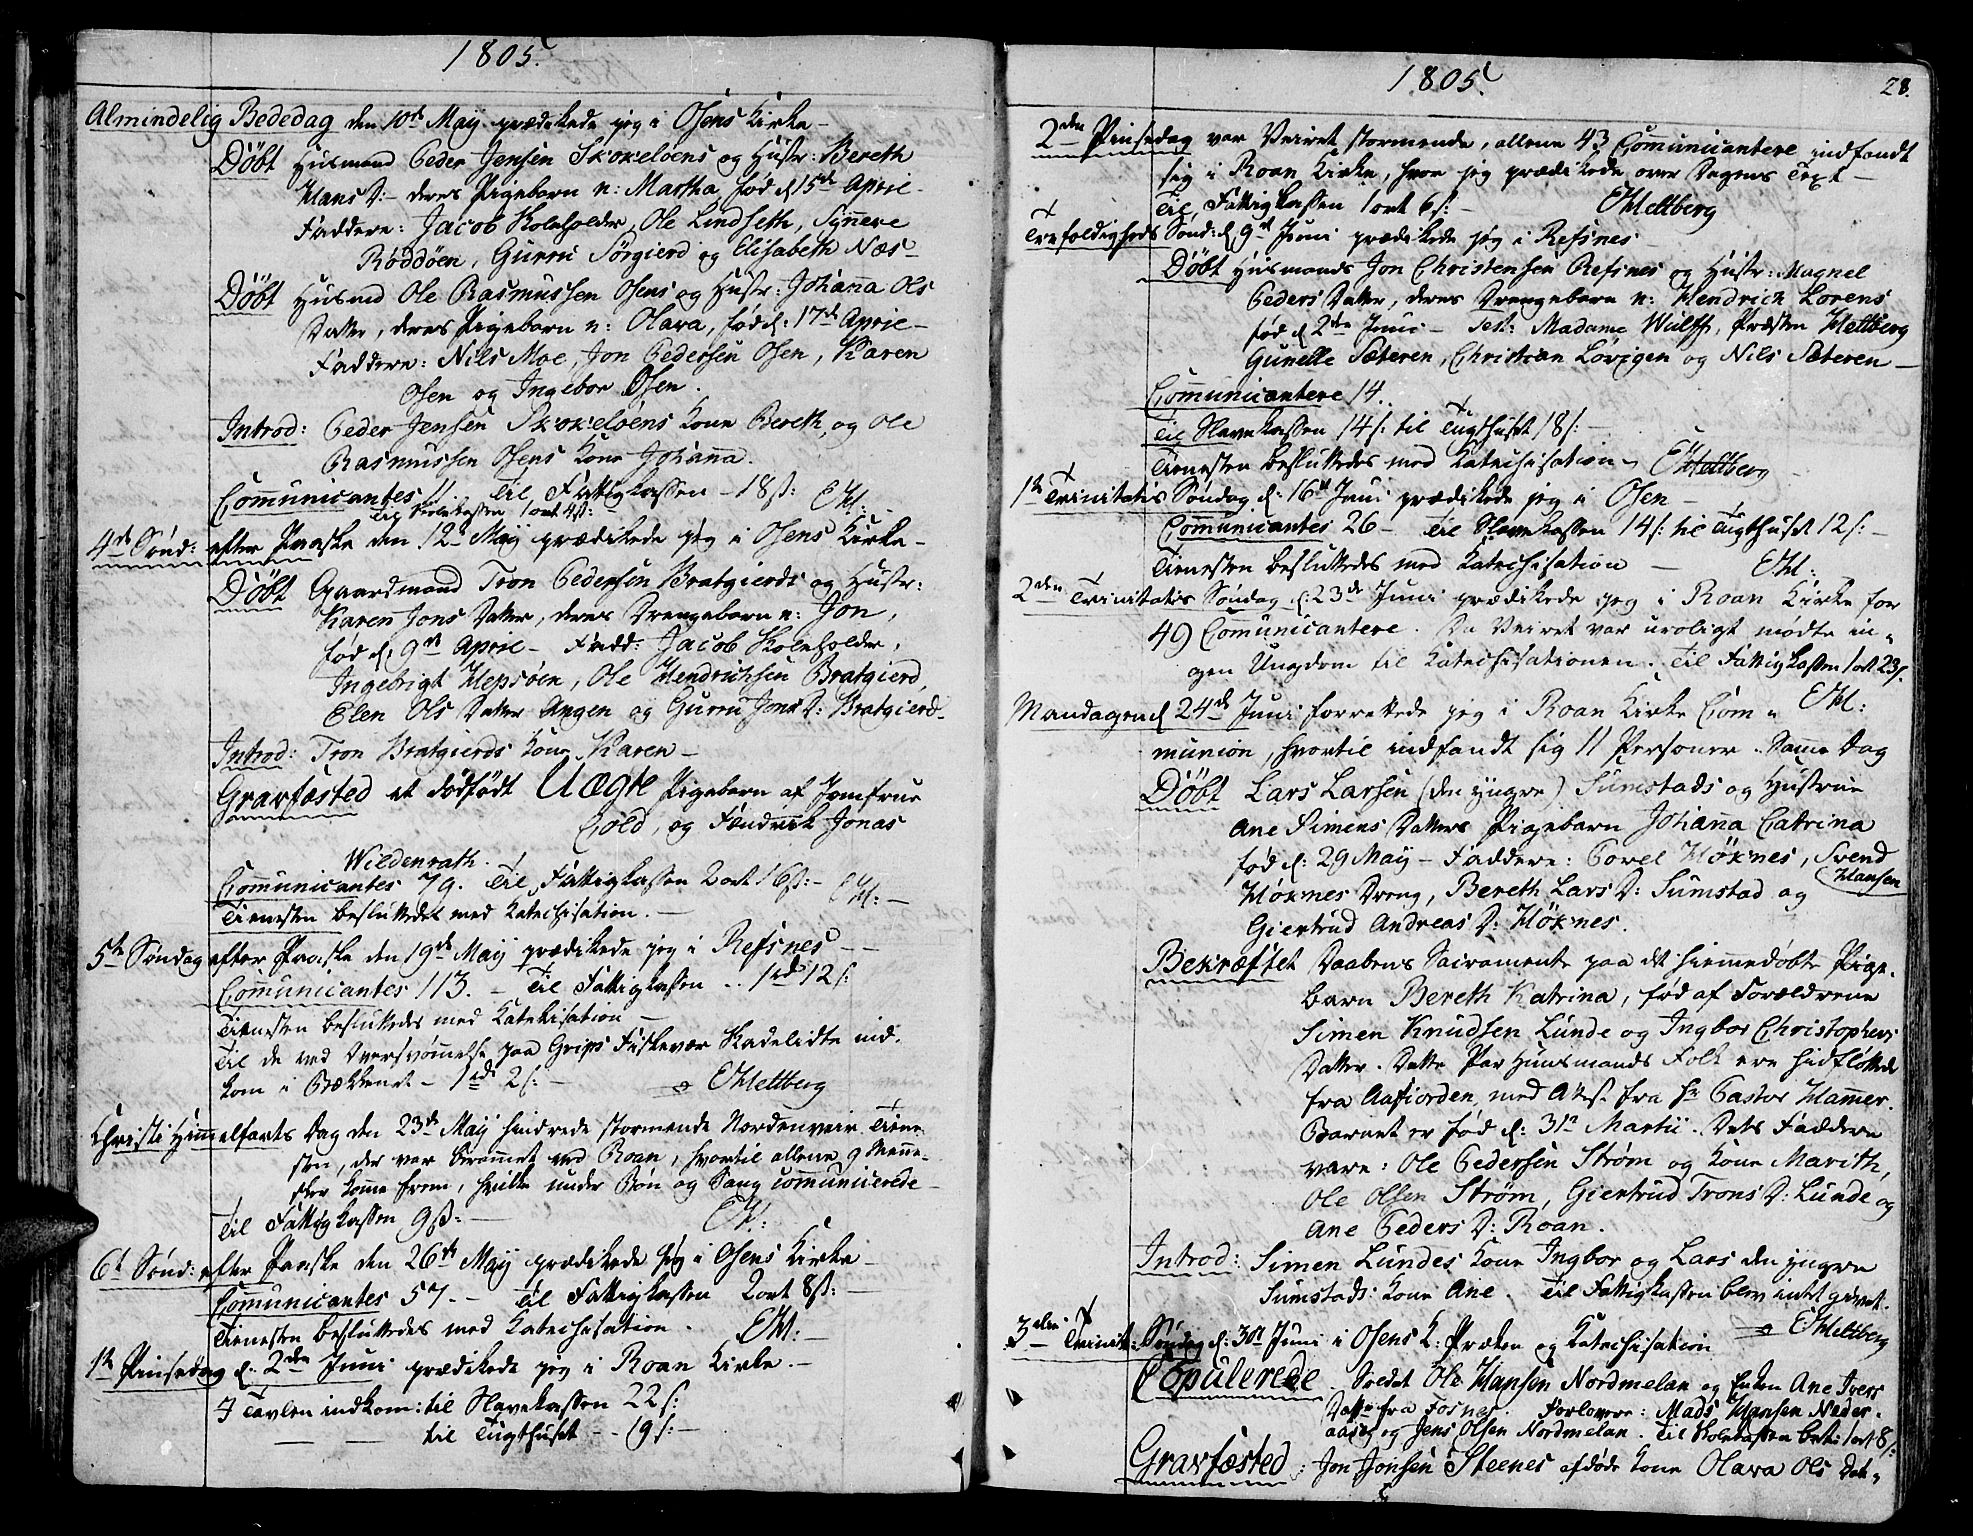 1805.
Almindelig Bededag den 10de Maij prædikede jeg i Osens Kirke –
Döbt Husmand Peder Jensen Skokeløens og Hustr: Bereth
Hans D: – deres Pigebarn n: Martha, fød d 15de Aprie –
Faddere: Jacob Skoleholder, Ole Lindseth, Synnere
Röddöen, Gurru Sörgierd og Elisabeth Næs –
Döbt Husmd Ole Rasmussen Osens og Hustr: Johanna Ols
Datter, deres Pigebarn n: Olava, fød d: 17de Aprie –
Faddere: Nils Moe, Jon Pedersen Osen, Karen
Osen og Ingebor Osen.
Introd: Peder Jensen Skokeløens Kone Bereth, og Ole
Rasmussen Osens Kone Johanna.
Communicantes 11. Til Fattigkassen – 18 ß: EH: –
Til Skolekassen 1 ort 4 ß:
4de Sönd: efter Paaske den 12 Maij prædikede jeg i Osens Kirke –
Döbt Gaardmand Tron Pedersen Bratgierds og Hustr:
Karen Jons Datter, deres Drengebarn n: Jon,
fød d, 9de Aprie – Fadd: Jacob Skoleholder,
Ingebrigt Hepsöen, Ole Hendrichsen Bratgierd,
Elen Ols Datter Angen og Gurru Jons D: Bratgierd –
Introd: Tron Bratgierds Kone Karen –
Gravfæsted et dödfödt Uægte Pigebarn af Jomfrue
Cold, og Fændrick Jonas
Wildenrath.
Communicantes 79. Til Fattigkassen 2 ort 16 ß: – EH: –
Tienesten besluttedes med Catechisation. –
5te Søndag efter Paaske den 19de Maij prædikede jeg i Refsnes – –
Communicantes 113. – Til Fattigkassen .. 1 rd 12 ß
Tienesten besluttedes med Katekisation –
Til de ved Oversvømmelse paa Grips Fiskevær Skadelidte ind-
kom i Bækkenet – 1 rd 2 ß: – EHettberg
Christi Himmelfarts Dag den 23de Maij hindrede stormende Nordenveir Tiene-
sten, der var berammet ved Roan, hvortil allene 9 Menne-
sker komme frem, hvilke under Bön og Sang communicerede –
Til Fattigkassen 9 ß: – EH:
6te Sönd: efter Paaske den 26de Maij prædikede jeg i Osens Kirke –
Communicantes 57. – Til Fattigkassen 2 ort 8 ß: –
Tienesten besluttedes med Catechisation. EH: –
1te Pinsedag d. 2den Juni prædikede jeg i Roan Kirke. –
I Tavlen indkom: til Slavekassen 22 ß:
– – til Tugthuset – 19 ß: –
1805.
28.
2den Pinsedag var Veiret stormende, allene 43 Communicantere indfandt
sig i Roan Kirke, hvor jeg prædikede over Dagens Text –
Til Fattigkassen 1 ort 6 ß: – EHettberg
Trefoldigheds Sönd: d, 9de Juni prædikede jeg i Refsnes
Döbt Husmands Jon Christensen Refsnes og Hustr: Magnel
Peders Datter, deres Drengebarn n: Hendrich Lorens
fød d 2den Juni – Test: Madame Wulff, Præsten Hettberg
Gunelle Sæteren, Christian Lövigen og Nils Sæteren –
Communicantere 14.
Til Slavekassen 14 ß: til Tugthuset 18 ß: –
Tienesten besluttedes med Catechisation EHettberg –
1te Trinitatis Søndag d: 16de Juni prædikede jeg i Osen –
Communicantes 26 – Til Slavekassen 14 ß: til Tugthuset 12 ß: –
Tienesten besluttedes med Catechisation – EH:
2den Trinitatis Søndag d: 23de Juni prædikede jeg i Roan Kirke for
49 Communicantere. Da Veiret var uroligt mødte in-
gen Ungdom til Catechisationen. Til Fattigkassen 1 ort 23 ß.
EH:
Mandagen d 24de Juni forrettede jeg i Roan Kirke Com-
munion, hvortil indfandt sig 11 Personer. Samme Dag
Döbt Lars Larsen (den yngre) Sumstads og Hustrue
Ane Simens Datters Pigebarn Johanna Catrina
fød d: 29 Maij – Faddere: Povel Höknes, Svend Hansen
Höknes Dreng, Bereth Lars D: Sumstad og
Giertrud Andreas D: Höknes.
Bekræftet Daabens Sacramente paa det hiemmedøbte Pige-
barn Bereth Katrina, fød af Forældrene
Simen Knudsen Lunde og Ingbor Christophers
Datter. Dette Par Huusmands Folk ere hidfløttede
fra Aafiorden med Attest fra Hr Pastor Hammer.
Barnet er fød d: 31te Martii. Dets Faddere
vare: Ole Pedersen Ström og Kone Marith,
Ole Olsen Ström, Giertrud Trons D: Lunde og
Ane Peders D: Roan.
Introd: Simen Lundes Kone Ingbor og Lars den yngre
Sumstads: Kone Ane. Til Fattigkassen blev intet givet.
EHettberg
3die Trinit: Søndag d: 30te Juni i Osens K: Præken og Catechisation
Copulerede Soldat Ole Hansen Nordmelan og Enken Ane Ivers
Datter fra Fosnes. Forlovere: Mads Hansen Neder-
aased og Jens Olsen Nordmelan. Til Skolekassen bet: 1 ort 8 ß:
Gravfæsted: Jon Jonsen Steenes afdøde Kone Olava Ols Dat-